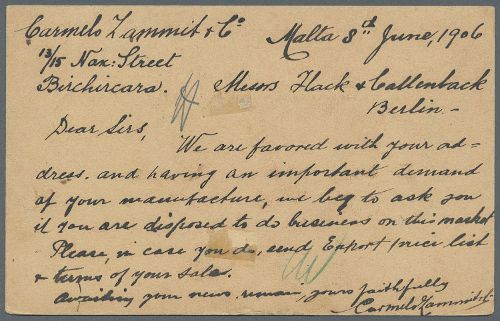 Carmelo Zammit & Co
Malta 8th June, 1906
13/15 Nax: Street
Birchircara.
Messrs Flack & Callenback
Berlin -
Dear Sirs,
We are favored with your ad-
dress. and having an important demand
of your manufacture, we beg to ask you
if you are disposed to do business on this market
Please, in case you do, send Export price list
& terms of your sale.
Awaiting your news remain, yours faithfully
Carmelo Zammit & Co